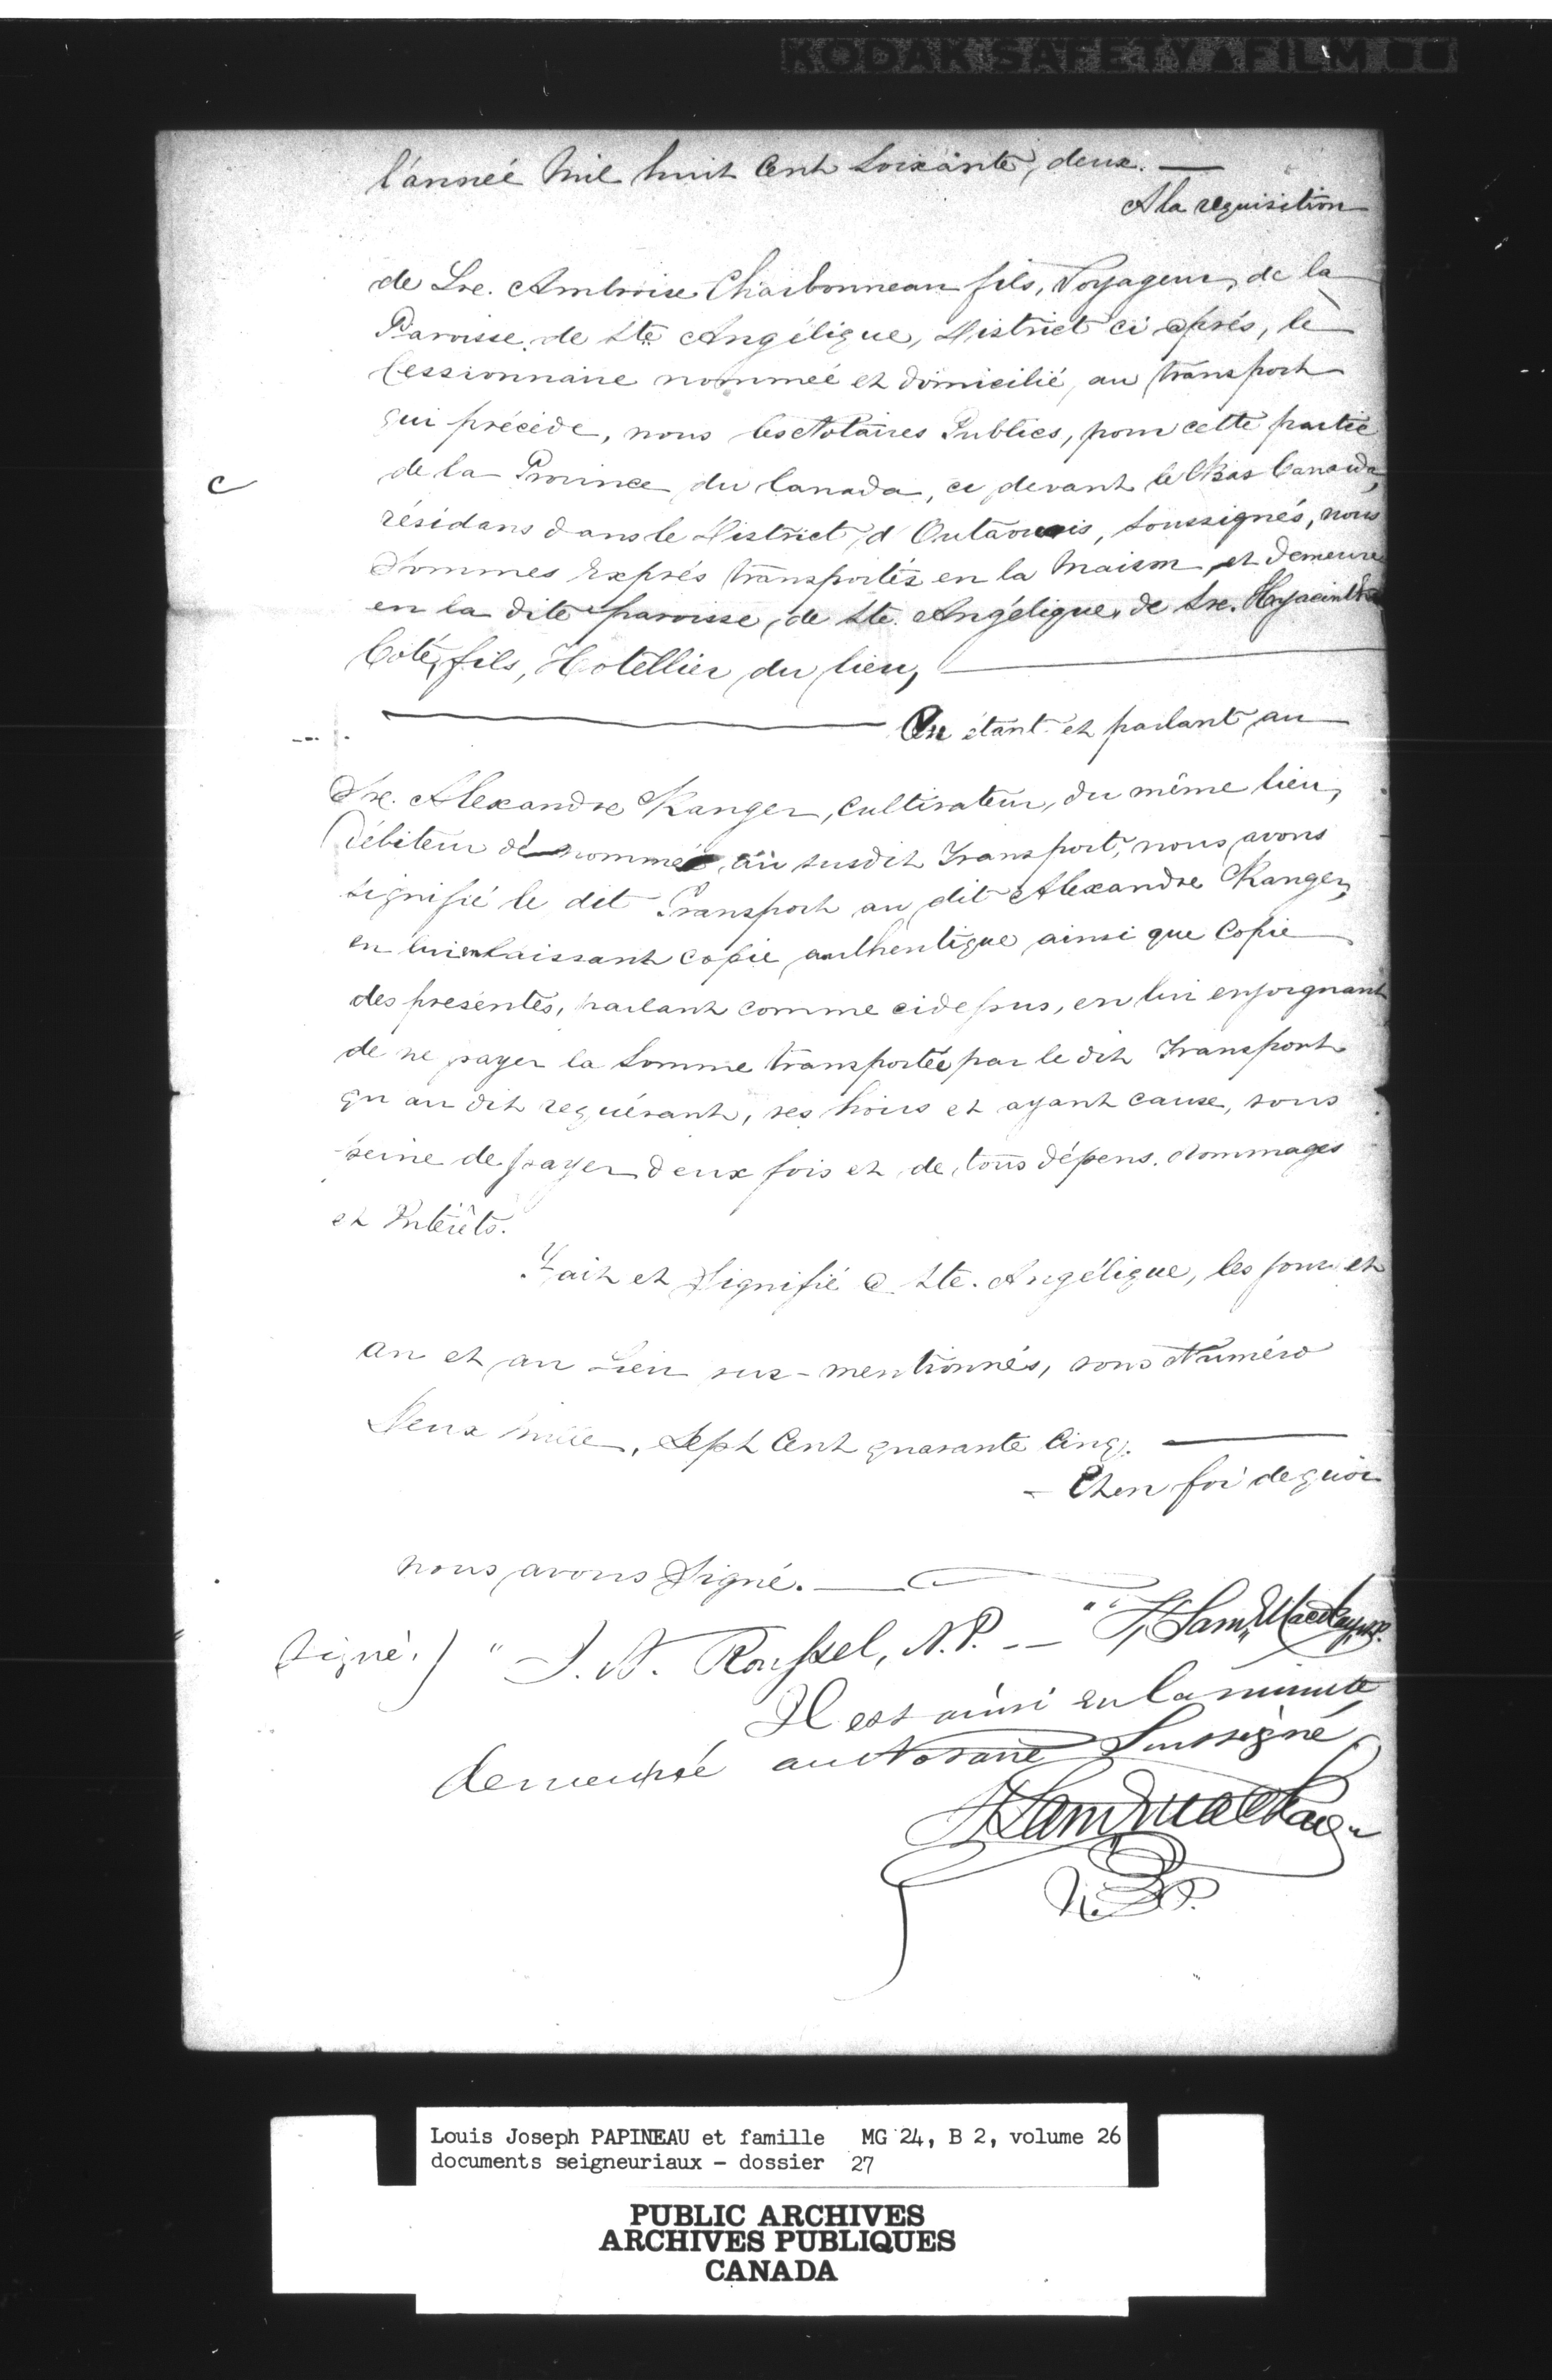 KODAK SAFETY FILM
l'année Mil huit Cent Soixante, deux. —
A la requisition
de Sre. Ambroise Charbonneau fils, Voyageur, de la
Paroisse de Ste Angélique, District ci après, le
Cessionnaire nommeé et domicilié, au transport
qui précède, nous les Notaires Publics, pour cette partie
de la Province du Canada, ci devant le Bas Canada,
résidans dans le District d'Outaouais, soussignés, nous
Sommes Exprés transportés en la Maison et demeure
en la dite paroisse, de Ste. Angélique, de Sre. Hyacinthe
Coté, fils, Hotellier du lieu, —
— Ou étant et parlant au
Sre. Alexandre Ranger, Cultivateur, du même lieu,
Débiteur dénommé au susdit Transport, nous avons
signifié le dit Transport au dit Alexandre Ranger,
en lui en laissant copie authentique ainsi que Copie
des présentes, parlant comme cidessus, en lui enjoignant
de ne payer la Somme transportée par le dit Transport
qu au dit requérant, ses hoirs et ayant cause, sous
peine de payer deux fois et de tous dépens, dommages
et Intérêts.
Fait et Signifié a Ste. Angélique, les jour et
an et au Lieu sus-mentionnés, sous Numéro
Deux mille, Sept Cent quarante Cinq. —
— Et en foi de quoi
nous avons Signé. —
Signé.) " J. N. Roussel, N.P. — " H, Sam, Mackay, N.P.
Il est ainsi en la minute
demeurée au Notaire Soussigné
H Sam Mackay
N.P.
Louis Joseph PAPINEAU et famille MG 24, B 2, volume 26
documents seigneuriaux – dossier 27
PUBLIC ARCHIVES
ARCHIVES PUBLIQUES
CANADA